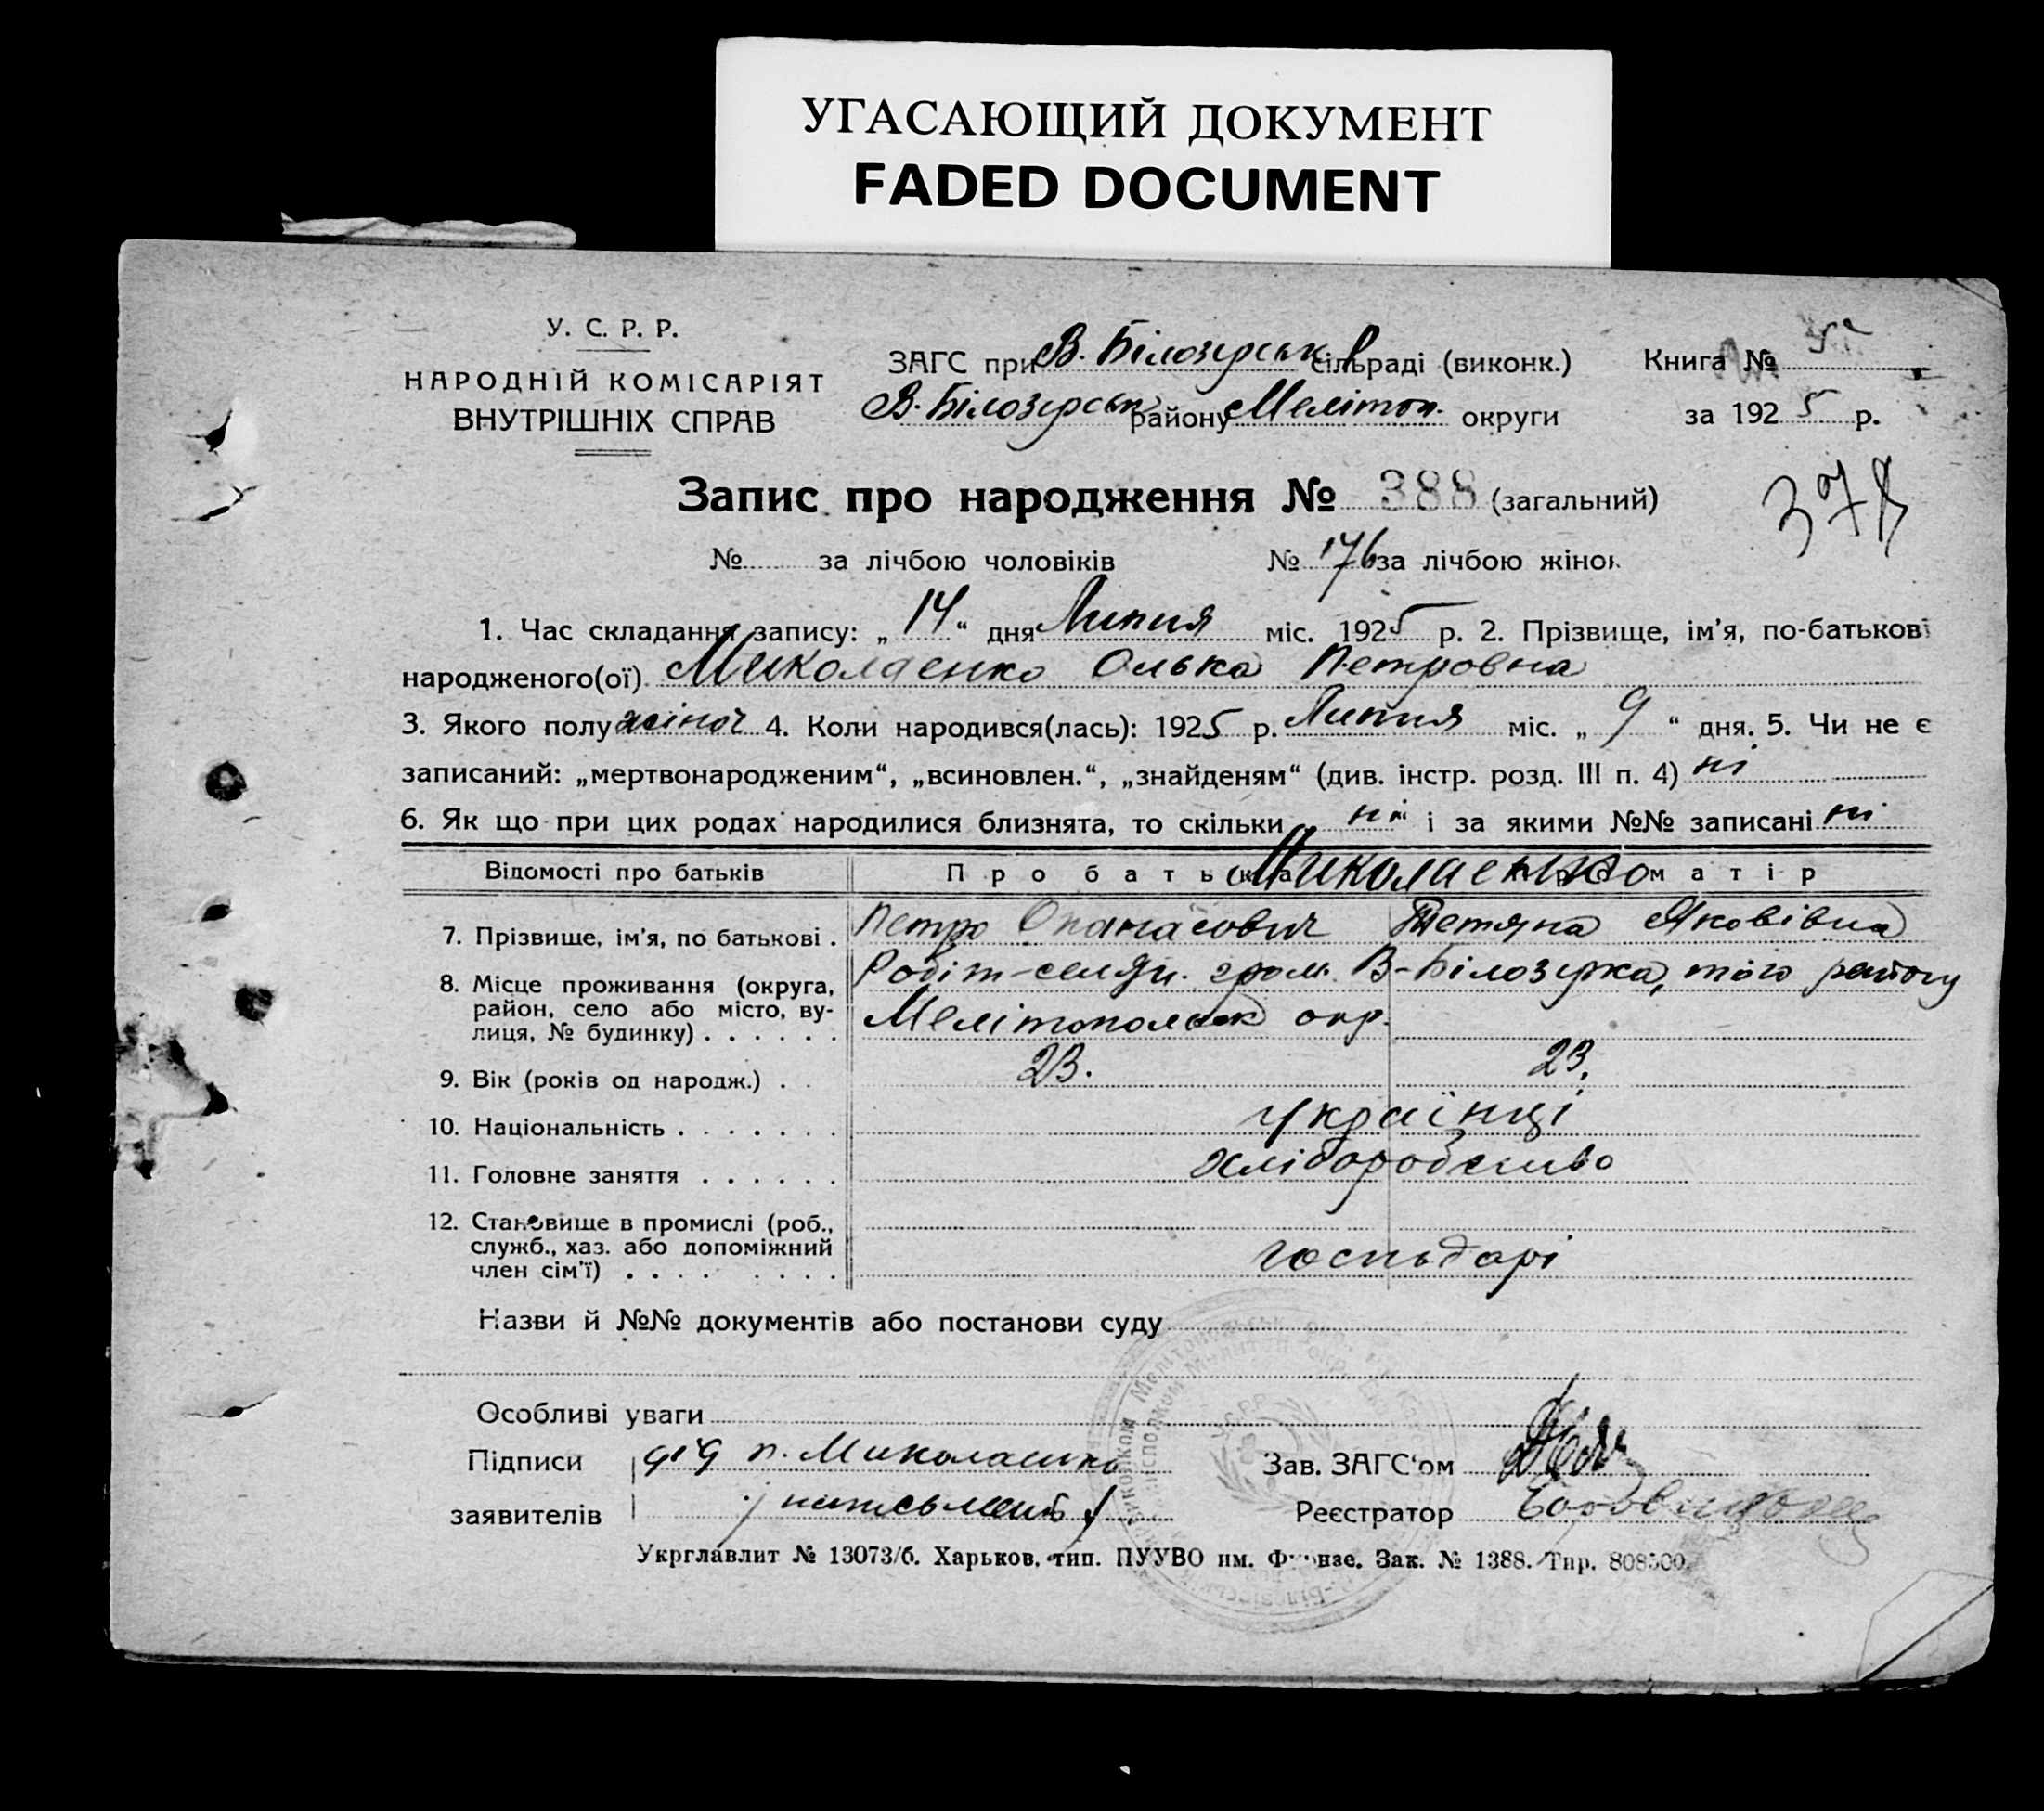 УГАСАЮЩИЙ ДОКУМЕНТ
FADED DOCUMENT
У. С. Р. Р.
НАРОДНІЙ КОМІСАРІЯТ
ВНУТРІШНІХ СПРАВ
ЗАГС при В. Білозерськ сільраді (виконк.) Книга № 5
В. Білозерськ району Мелітоп. округи за 1925 р.
Запис про народження № 388 (загальний)
378
№ за лічбою чоловіків № 176 за лічбою жінок
1. Час складання запису: „14“ дня Липня міс. 1925 р. 2. Прізвище, ім'я, по-батькові
народженого(ої) Миколаенко Олька Петровна
3. Якого полу жіноч 4. Коли народився(лась): 1925 р. Липня міс. „9“ дня. 5. Чи не є
записаний: „мертвонародженим“, „всиновлен.“, „знайденям“ (див. інстр. розд. III п. 4) ні
6. Як що при цих родах народилися близнята, то скільки „ні“ і за якими №№ записані ні
Відомості про батьків Про батька Про матір
Миколаенко
7. Прізвище, ім'я, по батькові . Петро Опанасович Тетяна Яковівна
8. Місце проживання (округа, район, село або місто, вулиця, № будинку) . . . . . . Робіт-селян. гром. В-Білозірка, того району
Мелітопольск окр.
9. Вік (років од народж.) . . 23. 23.
10. Національність . . . . . . . українці
11. Головне заняття . . . . . . хліборобство
12. Становище в промислі (роб., служб., хаз. або допоміжний член сім'ї) . . . . . . . . господарі
Назви й №№ документів або постанови суду
Особливі уваги
Підписи дід п. Миколаенко Зав. ЗАГС'ом
заявителів Реєстратор
Укрглавлит № 13073/б. Харьков, тип. ПУУВО им. Фрунзе. Зак. № 1388. Тир. 808500.